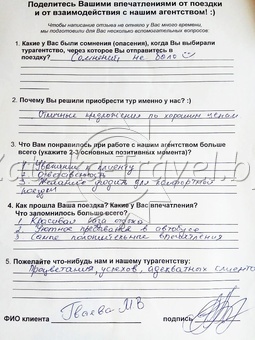 Поделитесь Вашими впечатлениями от поездки
и от взаимодействия с нашим агентством! :)
Чтобы написание отзыва не отняло у Вас много времени,
мы подготовили для Вас несколько вспомогательных вопросов
1. Какие у Вас были сомнения (опасения), когда Вы выбирали
турагентство, через которое Вы отправитесь в
поездку? Сомнений не было
2. Почему Вы решили приобрести тур именно у нас? :)
Отличные предложения по хорошим ценам
3. Что Вам понравилось при работе с нашим агентством больше
всего (укажите 2-3 основных позитивных момента)?
1 Уважение к клиенту
2 Ответственность
3 Желание сделать для комфортной
поездки
4. Как прошла Ваша поездка? Какие у Вас впечатления?
Что запомнилось больше всего?
1. Красивая
2. Уютное в автобусе
3. Самые положительные впечатления
5. Пожелайте что-нибудь нам и нашему турагентству:
Процветания, успехов, адекватных клиентов
ФИО клиента
подпись